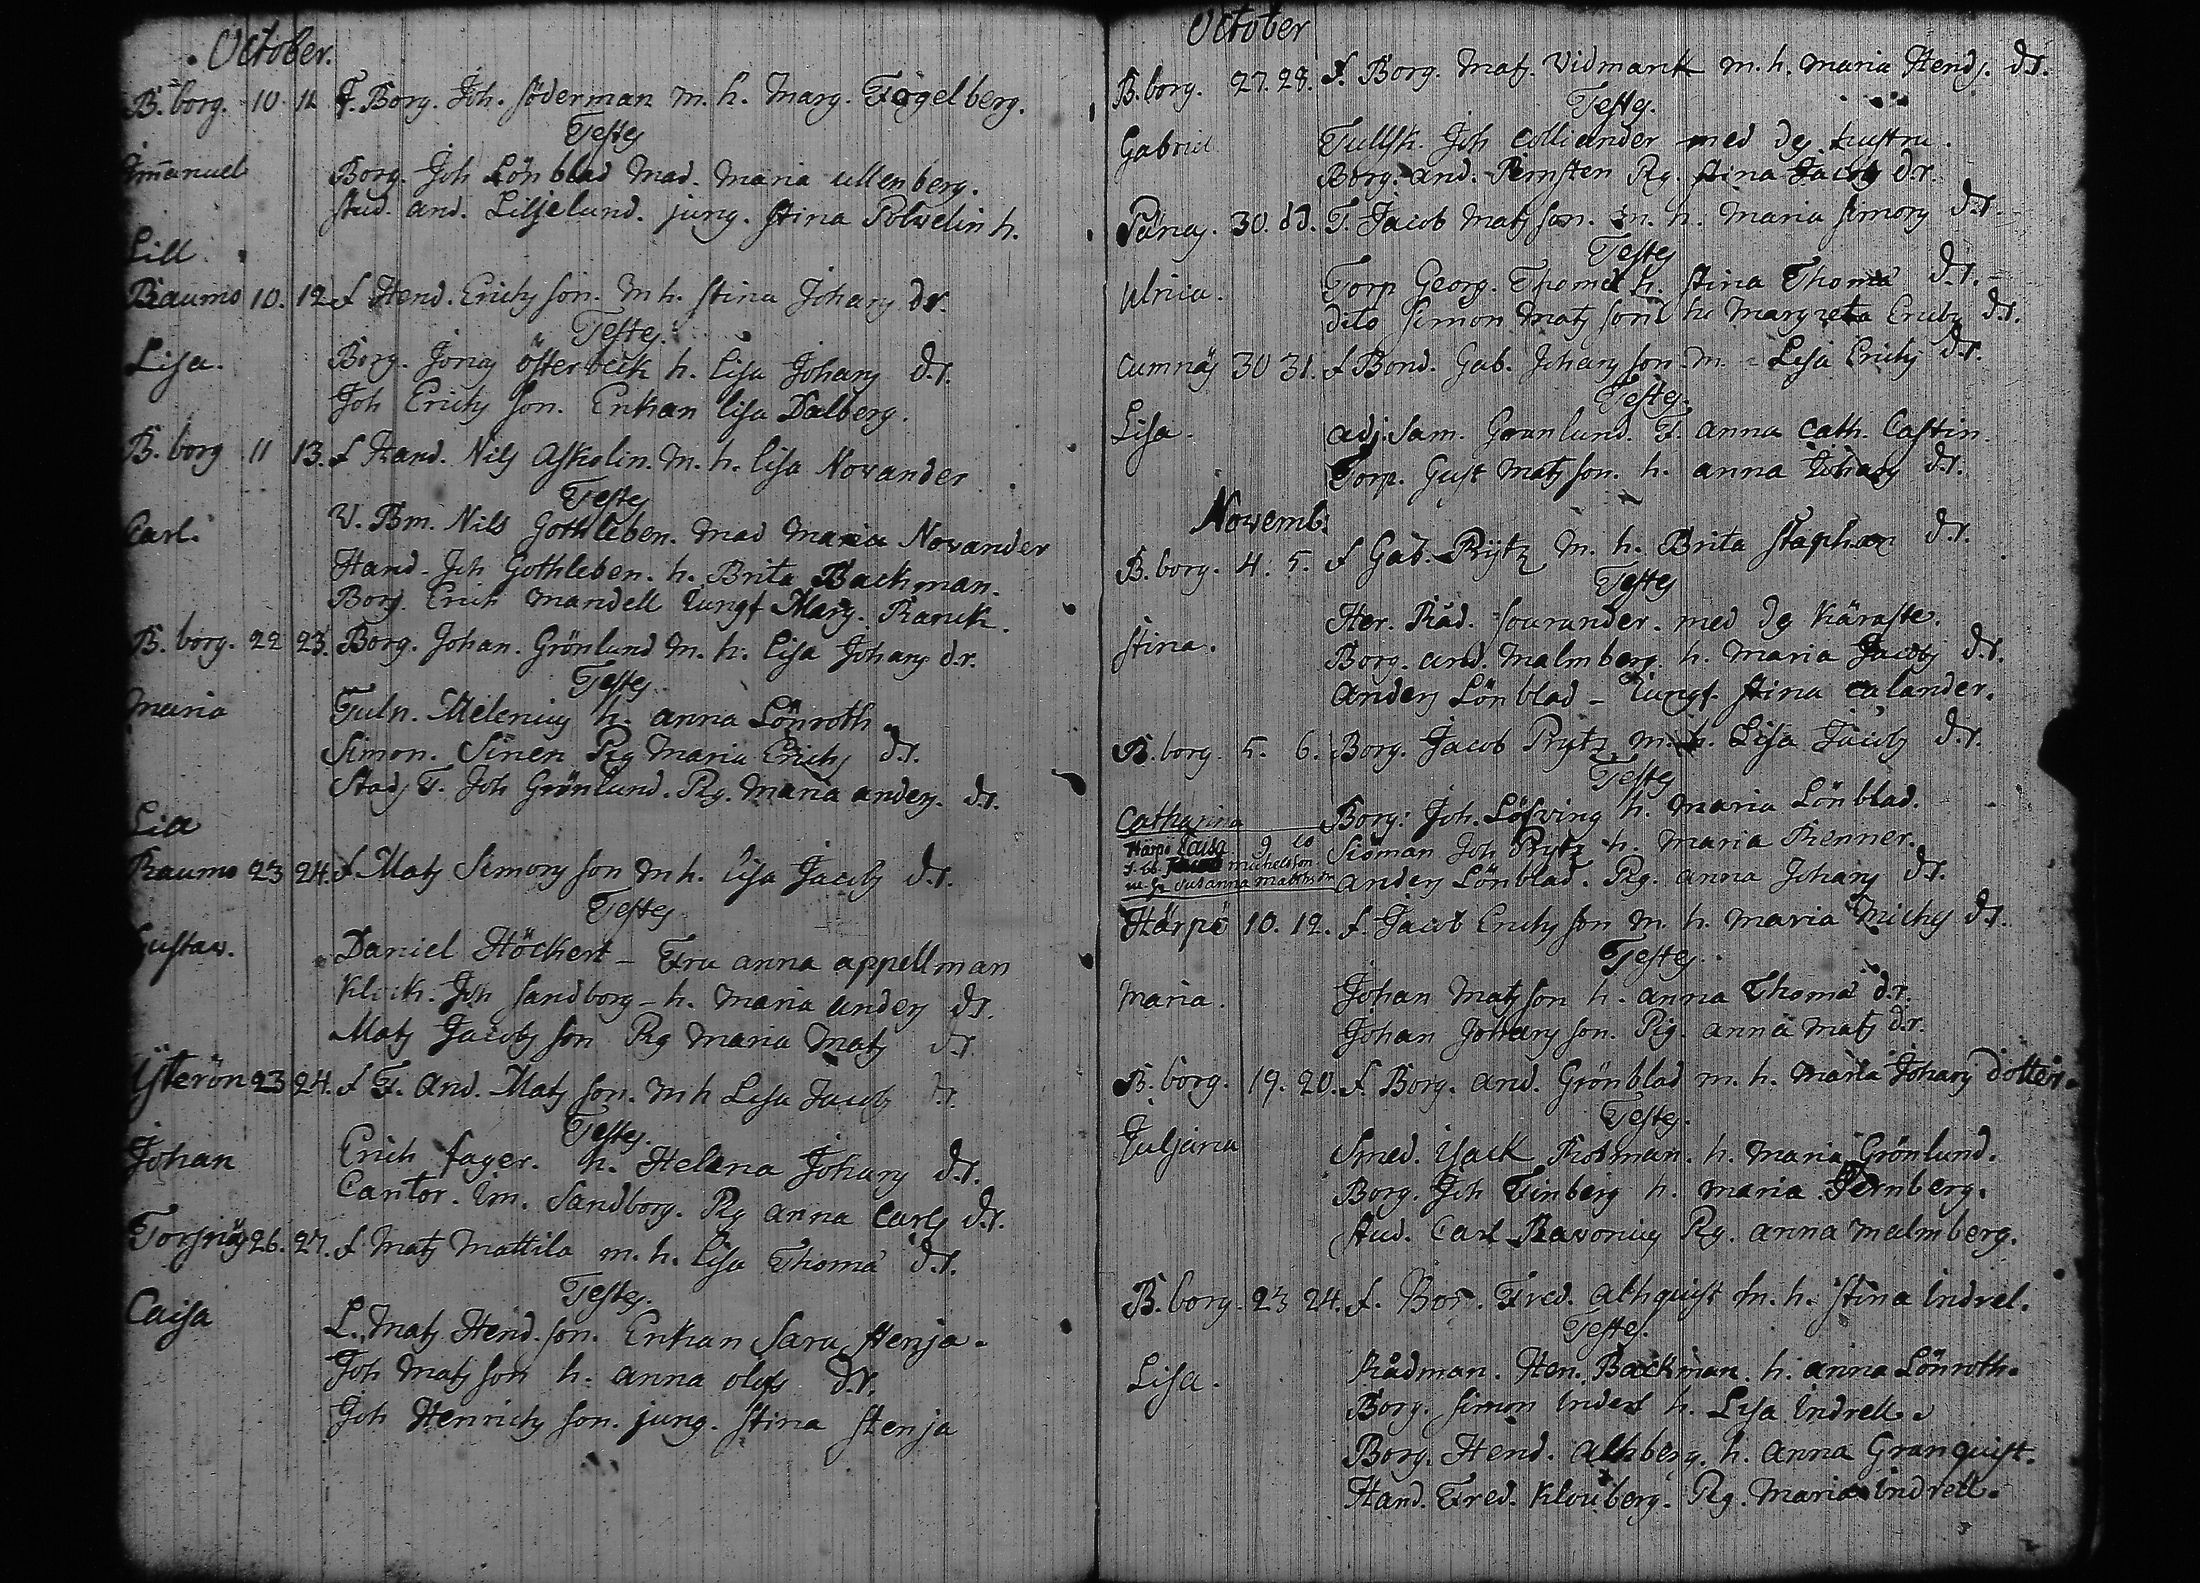 October.
B. borg. 10 11 F. Borg. Joh. Söderman m. h. Marg. Fogelberg.
Testes
Emanuel Borg. Joh Lönblad Mad. Maria Ullenberg.
Stud. And. Liljelund. jung. Stina Polvelin h.
Lill
Raumo 10. 12 f Hend. Erichs son. M h. Stina Johans dr.
Testes.
Lisa. Borg. Jonas Österbeck h. Lisa Johans d.r.
Joh Erichs son. Enkan Lisa Dalberg.
B. borg 11 13. f Hand. Nils Askolin. M. h. Lisa Novander
Testes
Carl. V. Bm. Nils Gottleben. Mad Maria Novander
Hand. Joh Gothleben. h. Brita Backman.
Borg. Erich Mandell Jungf Marg. Ranck.
B. borg. 22 23. Borg. Johan. Grönlund m. h. Lisa Johans d.r.
Testes
Maria Tuln. Melenius h. Anna Lönroth
Simon. Sinen Pig Maria Erichs d.r.
Stads T. Joh Grönlund. Pig. Maria Anders. d.r.
Lill
Raumo 23 24. f Mats Simons son m h. Lisa Jacobs d.r.
Testes
Gustav. Daniel Höckert – Fru Anna Appellman
Klock. Joh Sandborg – h. Maria Anders dr.
Mats Jacobs son Pig Maria Mats dr.
Ysterön 23 24. f T. And. Mats son. m h Lisa Jacobs
Testes.
Johan Erich Fager. h. Helena Johans d.r.
Cantor. Im. Sandborg. Pig Anna Carls d.r.
Torsnäs 26. 27. f. Mats Mattila m. h. Lisa Thoma d.r.
Testes.
Caisa L. Mats Hend. son. Enkan Sara Stenja.
Joh Mats son h. Anna Olofs d.r.
Joh Henrichs son. jung. Stina Stenja
October
B. borg. 27. 28. f. Borg. Mats. Vidmark m. h. Maria Hends. d.r.
Testes.
Gabriel Tullsk. Joh Colliander med ds hustru.
Borg. And. Pig. Stina Jacobs d.r.
30. T. Jacob Mats son. m. h. Maria Simons d.r.
Testes
Ulrica. Torp Georg. Thoma h. Stina Thoma d.r.
dito Simon Mats son h. Margreta Erichs d.r.
Cumnäs 30 31. f Bond. Gab. Johans son. m. Lisa Erichs d.r.
Testes.
Lisa. Adj. Sam. Granlund. F. Anna Cath. Castin.
Torp. Gust Mats son. h. Anna Johans d.r.
Novemb.
B. borg. 4. 5. f Gab. Prytz m. h. Brita Staphan d.r.
Testes
Stina. Her. Råd. Sourander. med ds Käraste.
Borg. And. Malmberg. h. Maria Jacobs d.r.
Anders Lönblad – Jungf. Stina Calander.
B. borg. 5. 6. Borg. Jacob Prytz m. h. Lisa Jacobs d.r.
Testes
Catharina Borg: Joh. Löfving h. Maria Lönblad.
Härpö Caisa 9 10
Sioman Joh Prytz h. Maria Renner.
Michelsson
m. h. Susanna Mattsdr
Anders Lönblad. Pig. Anna Johans d.r.
Härpö 10. 12. f. Jacob Erichs son m. h. Maria Michs d.r.
Testes.
Maria. Johan Mats son h. Anna Thoma d.r.
Johan Johans son. Pig. Anna Mats d.r.
B. borg. 19. 20. f. Borg. And. Grönblad m. h. Maria Johans dotter.
Testes.
Juljana Smed. Isack Rosman. h. Maria Grönlund.
Borg. Joh Finberg h. Maria Fernberg.
Stud. Carl Ravonius Pig. Anna Malmberg.
B. borg. 23 24. f. Bor. Fred. Alhquist m. h. Stina Indrel.
Testes.
Lisa. Rådman. Hen. Backman. h. Anna Lönroth.
Borg. Simon Indrel h. Lisa Indrell.
Borg. Hend. Alhberg. h. Anna Granquist.
Hand. Fred. Klouberg. Pig. Maria Indrell.